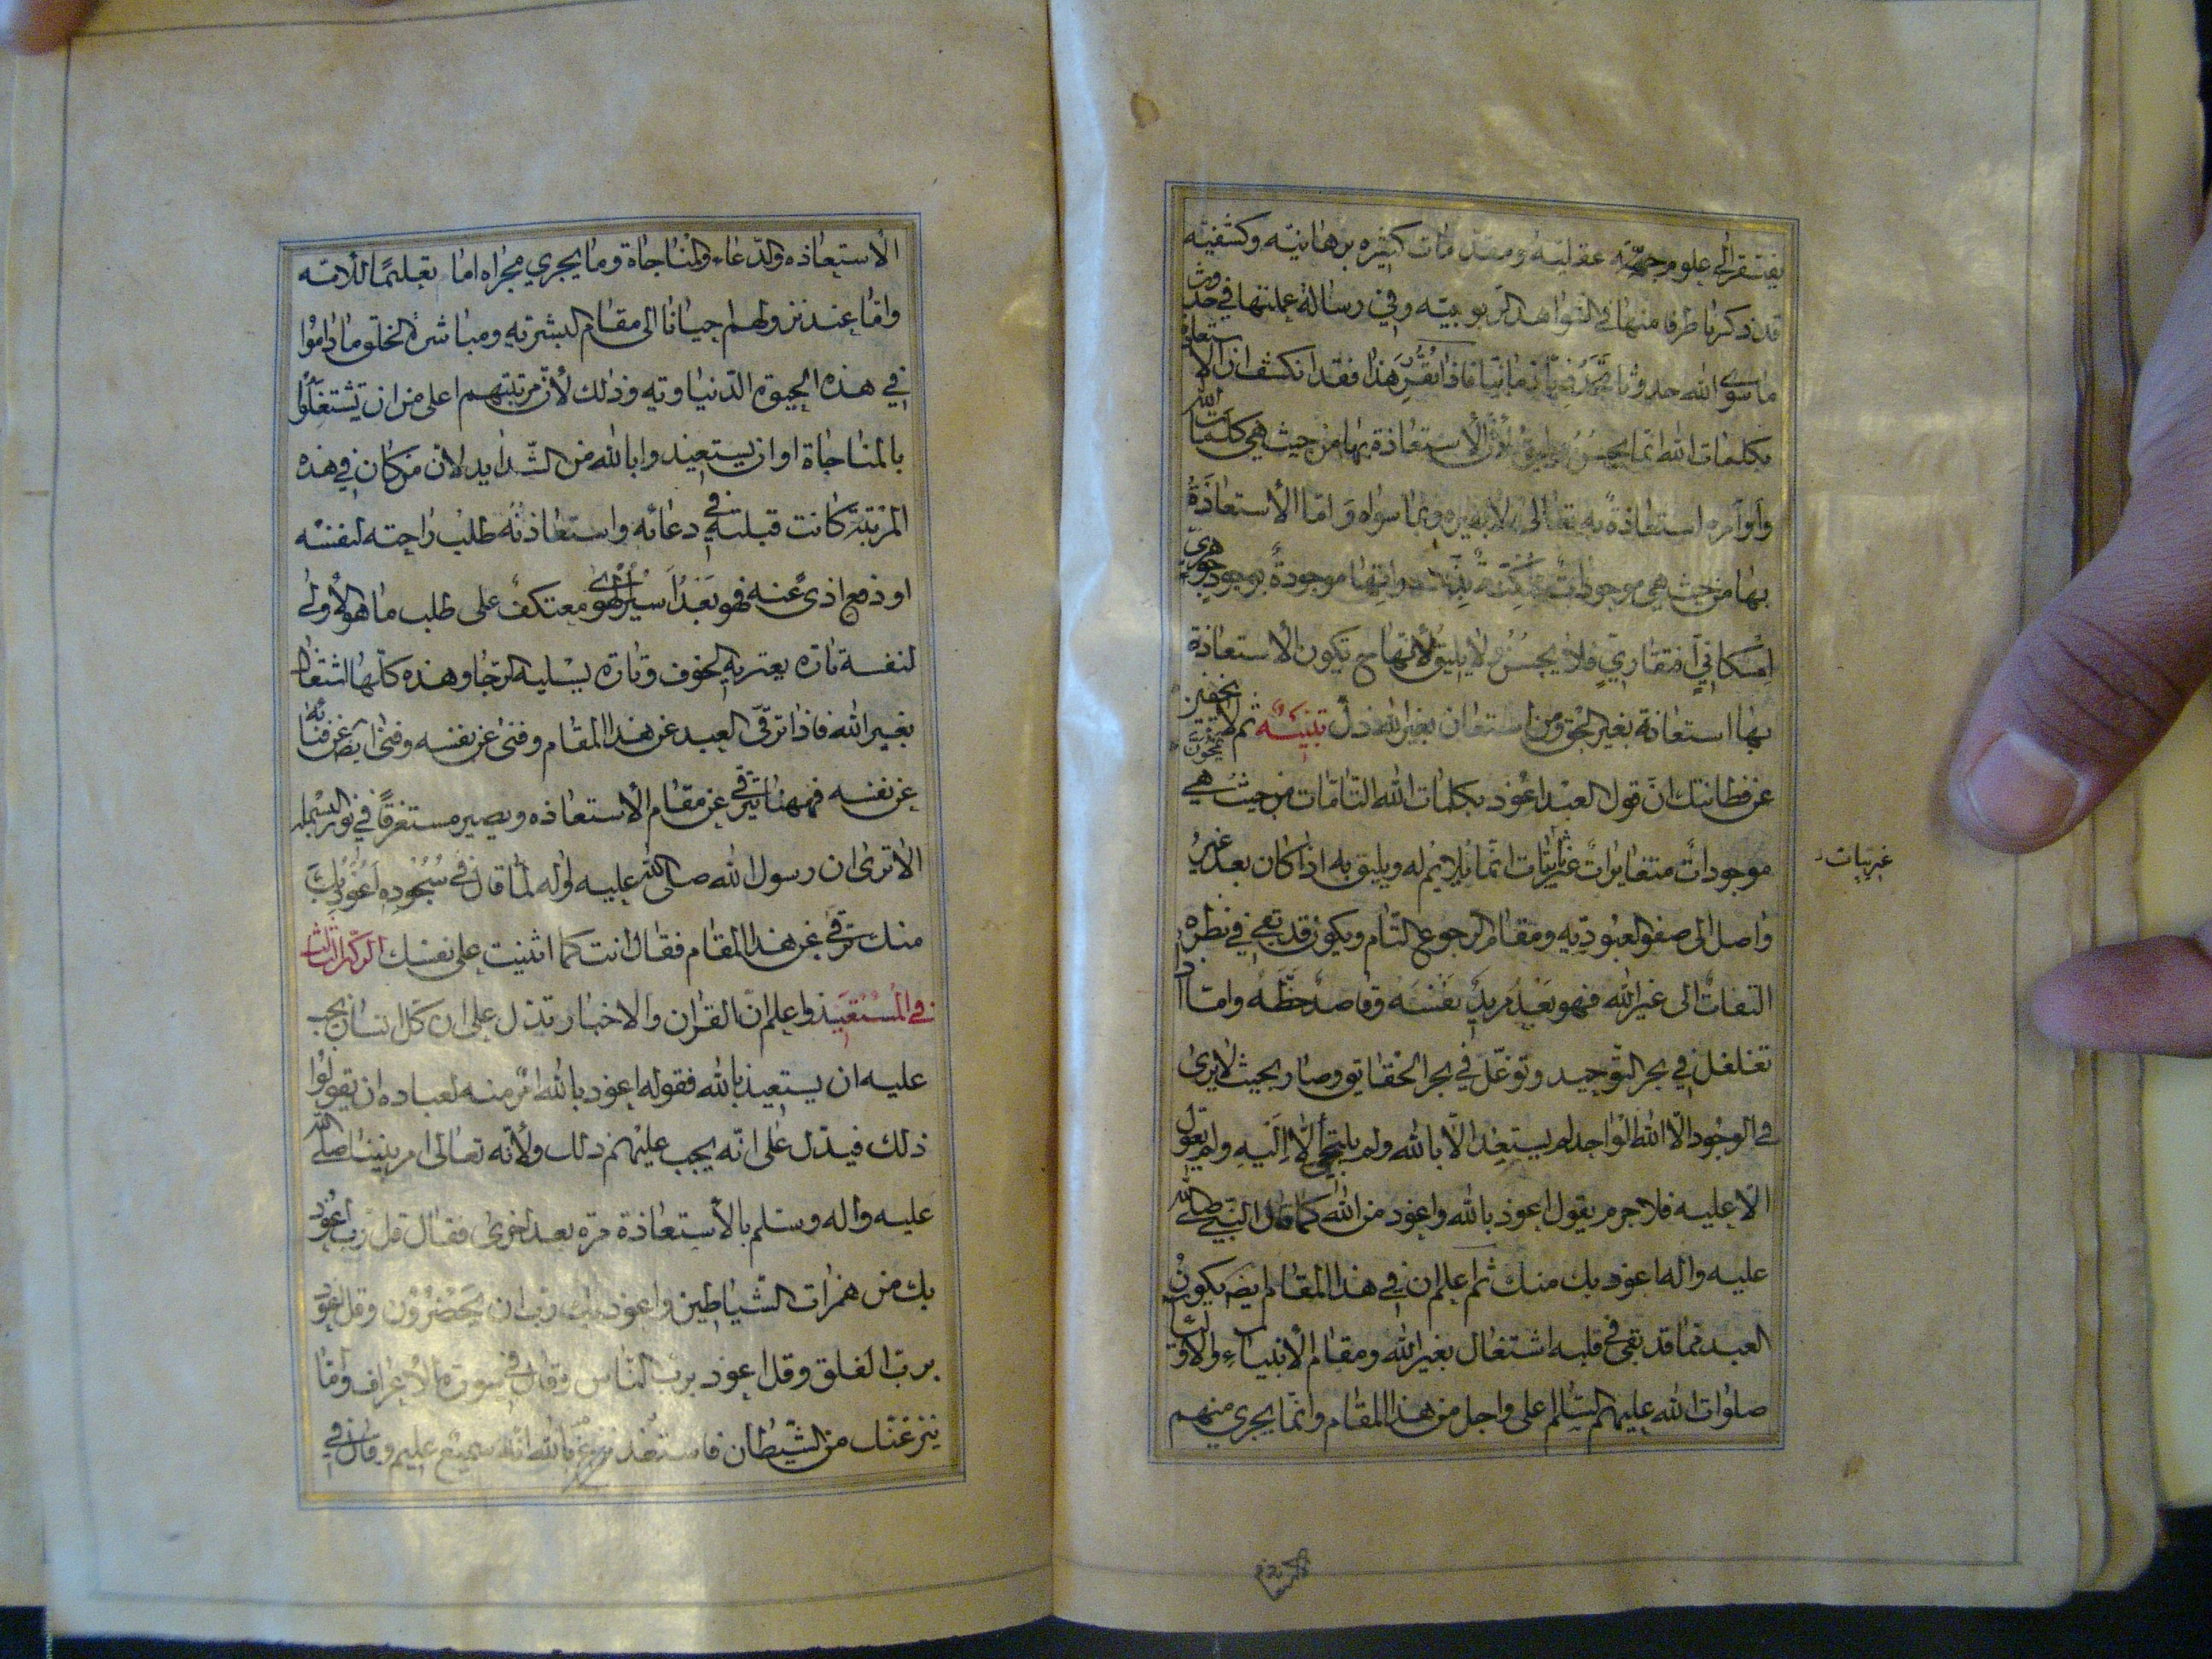 يفتقر الى علوم جمّة عقليته ومقدمات كثيره برهانيته وكشفيته
قد ذكرنا طرفا منها في الشواهد الربوبيته وفي رسالة عملتها في حدوث
ما سوى الله حدوثا تجدديّا زمانيّا فاذا تقرّر هذا فقد انكشف ان الاستعاذة
بكلمات الله انما يحسن ويليق لأنّ الأستعاذة بها من حيث هي كلمات الله
وأوامره استعاذةً به تعالى لا بغيره وبما سواه وَامّا الأستعاذَةُ
بها من حيث هي موجودات ممكنةٌ بذواتها موجودةٌ بوجودٍ جوهريّ
اِمْكانيّ افتقاريّ فلا يحسُنُ ولا يليقُ لأنّها ح يكون الأستعاذة
بها استعاذة بغير الحق ومن استعان بغير الله ذلّ تنبيْه ثم لا تخفين
عن فطانتك انّ قول العبْد اعُوذ بكلمات الله التامّات من حيث هي
موجوداتٌ متغايراتٌ غيريّات انّما يُلايمُ له ويليق به اذا كان بعد غيرُ
واصل الى صفو العبُوديّه ومقام الرجوع التام ويكون قد بقي في نظره
التفاتٌ الى غير الله فهو بَعْدُ مريدٌ نَفْسَه وقاصدٌ حظّه وامّا اذا
تغلغل في بحر التّوحيد وتوغّل في بحر الحقايق وصار بحيث لا يرى
في الوجُود الّا الله الواحد لم يستعِذ الّا بالله ولم يلتجئ الّا اليه ولم يعوّل
الّا عليه فلا جرم يقول اعوذ بالله واعوذ من الله كما قال النبي صلى الله
عليه واله اعوذ بك منك ثم اعلم ان في هذا المقام ايضَ يكونُ
العبد مما قد بقي في قلبه اشتغال بغير الله ومقام الأنبياء والاولياء
صلوات الله عليهم السّلم على واجل من هذا المقام وانّما يجري منهم
غيريات
الأستعاذه والدّعاء والمُناجاة وما يجري مجراه اما تعليمًا للأمّه
وامّا عند نزولهم احيانا الى مقام البشريّه ومباشرة الخلق ما داموُا
في هذه الحيوة الدّنياويّه وذلك لأنّ مرتبتهم اعلى من ان تشتغلُوا
بالمناجاة او ان يستعيذوا بالله من الشّدايد لانّ من كان في هذه
المرْتبَة كانت قبلته في دعائه واستعاذتُه طلب راحته لنفسْه
او دفع اذىً عنه فهو بَعْدُ اَسيْر الهوى معتكفٌ على طلب ما هو الأولى
لنفسه تاره يعتريه الخوف وتاره يسْليه الرّجا وهذه كلّها اشتغالٌ
بغير الله فاذا ترقّى العبد عن هذا المقام وفنى عن نفسه وفنى ايضَ عن فنائه
عن نفسه فههنا يترقى عن مقام الأستعاذه ويصير مستغرقًا في نور البسْمله
الا ترى ان رسول الله صلى الله عليه واله لمّا قال في سُجُوده اَعُوذُ بِكَ
منك ترقى عن هذا المقام فقال انت كما اثنيت على نفسك الركن الثالث
في المُسْتَعِيْذ واعلم انّ القران والاخبار تدل على ان كلّ انسان يجب
عليه ان يستعيذ بالله فقوله اعوذ بالله امرٌ منه لعباده ان يقولُوا
ذلك فيدّل على انّه يجب عليهم ذلك ولأنّه تعالى امر نبيّنا صلّى الله
عليه واله وسلم بالأستعاذة مرّه بعد اخرى فقال قل ربّ اعُوذ
بك من همزات الشياطين واعوذ بك ربّ ان يَحْضُرُوْن وقل اعوذ
بربّ الفلق وقل اعوذ بربّ النّاس وقال في سورة الأعراف وامّا
ينزغنّك من الشّيطان نزغٌ فاستَعُذ بالله انّه سميعٌ عليم وقال في